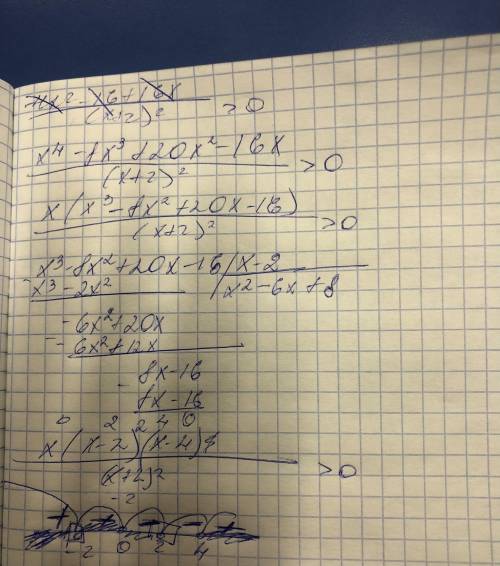 4x² - 16 + 16x / (x+2)² > 0
x⁴ - 8x³ + 20x² - 16x / (x+2)² > 0
x(x³ - 8x² + 20x - 16) / (x+2)² > 0
x³ - 8x² + 20x - 16 | x - 2
x³ - 2x² | x² - 6x + 8
- 6x² + 20x
- 6x² + 12x
8x - 16
8x - 16
0 2 2 4 0
x(x-2)(x-4) / (x+2)² > 0
-2
+ + - - +
-2 0 2 4